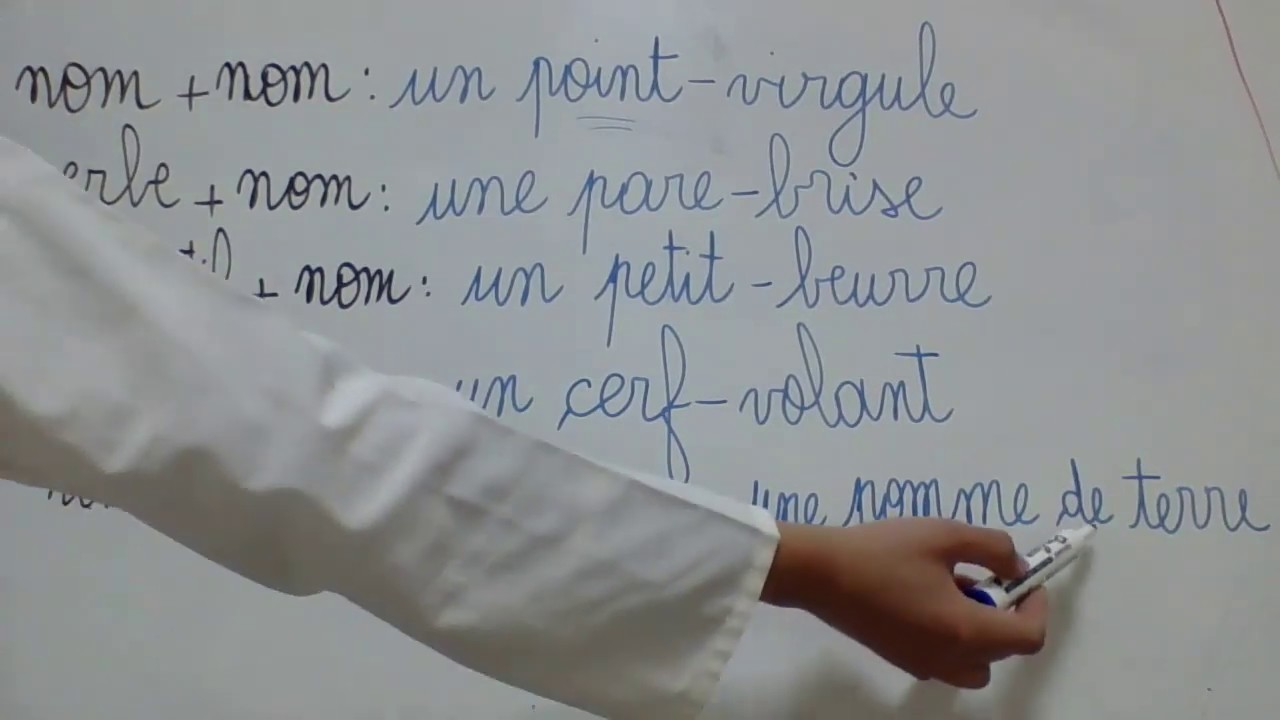 nom + nom : un point-virgule
+ nom : une pare-brise
+ nom : un petit-beurre
un cerf-volant
une pomme de terre